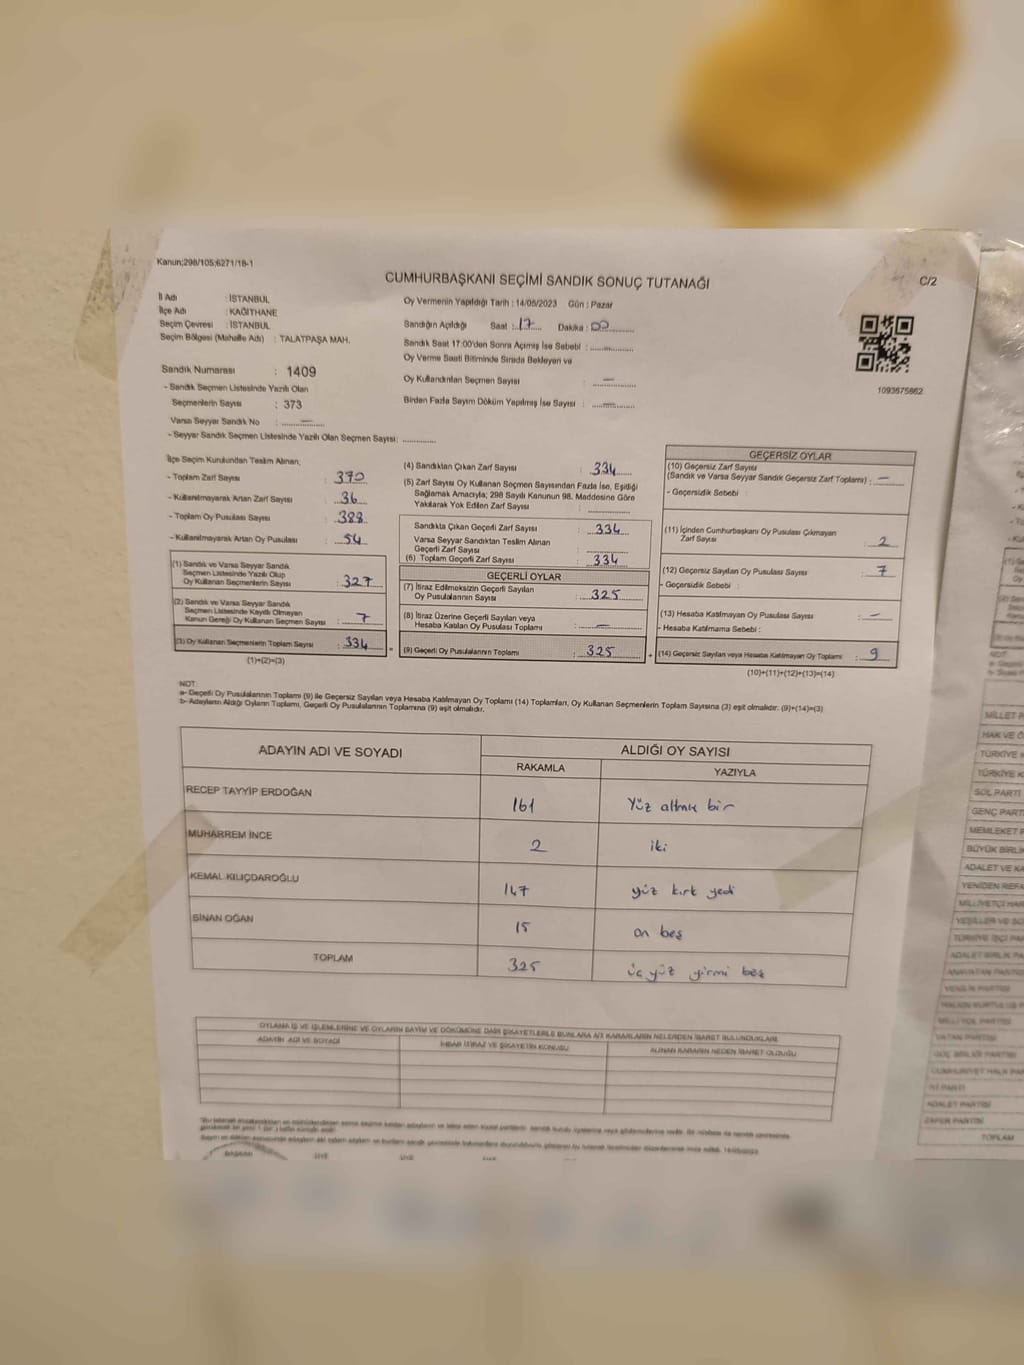 Kanun;298/105;6271/18-1
CUMHURBAŞKANI SEÇİMİ SANDIK SONUÇ TUTANAĞI
C/2
İl Adı : İSTANBUL
İlçe Adı : KAĞITHANE
Seçim Çevresi : İSTANBUL
Seçim Bölgesi (Mahalle Adı) : TALATPAŞA MAH.
Sandık Numarası : 1409
- Sandık Seçmen Listesinde Yazılı Olan
Seçmenlerin Sayısı : 373
Varsa Seyyar Sandık No : —
- Seyyar Sandık Seçmen Listesinde Yazılı Olan Seçmen Sayısı: ............
Oy Vermenin Yapıldığı Tarih : 14/05/2023 Gün : Pazar
Sandığın Açıldığı Saat : 17 Dakika : 00
Sandık Saat 17:00'den Sonra Açılmış İse Sebebi : ............
Oy Verme Saati Bitiminde Sırada Bekleyen ve
Oy Kullandırılan Seçmen Sayısı : —
Birden Fazla Sayım Döküm Yapılmış İse Sayısı : —
1093675862
İlçe Seçim Kurulundan Teslim Alınan;
- Toplam Zarf Sayısı : 370
- Kullanılmayarak Artan Zarf Sayısı : 36
- Toplam Oy Pusulası Sayısı : 388
- Kullanılmayarak Artan Oy Pusulası : 54
(1) Sandık ve Varsa Seyyar Sandık
Seçmen Listesinde Yazılı Olup
Oy Kullanan Seçmenlerin Sayısı : 327
(2) Sandık ve Varsa Seyyar Sandık
Seçmen Listesinde Kayıtlı Olmayan
Kanun Gereği Oy Kullanan Seçmen Sayısı : 7
(3) Oy Kullanan Seçmenlerin Toplam Sayısı : 334
(1)+(2)=(3)
(4) Sandıktan Çıkan Zarf Sayısı : 334
(5) Zarf Sayısı Oy Kullanan Seçmen Sayısından Fazla İse, Eşitliği
Sağlamak Amacıyla; 298 Sayılı Kanunun 98. Maddesine Göre
Yakılarak Yok Edilen Zarf Sayısı : ............
Sandıkta Çıkan Geçerli Zarf Sayısı : 334
Varsa Seyyar Sandıktan Teslim Alınan
Geçerli Zarf Sayısı : ............
(6) Toplam Geçerli Zarf Sayısı : 334
GEÇERLİ OYLAR
(7) İtiraz Edilmeksizin Geçerli Sayılan
Oy Pusulalarının Sayısı : 325
(8) İtiraz Üzerine Geçerli Sayılan veya
Hesaba Katılan Oy Pusulası Toplamı : —
= (9) Geçerli Oy Pusulalarının Toplamı : 325
GEÇERSİZ OYLAR
(10) Geçersiz Zarf Sayısı
(Sandık ve Varsa Seyyar Sandık Geçersiz Zarf Toplamı) : —
- Geçersizlik Sebebi :
(11) İçinden Cumhurbaşkanı Oy Pusulası Çıkmayan
Zarf Sayısı : 2
(12) Geçersiz Sayılan Oy Pusulası Sayısı : 7
- Geçersizlik Sebebi :
(13) Hesaba Katılmayan Oy Pusulası Sayısı : —
- Hesaba Katılmama Sebebi :
+ (14) Geçersiz Sayılan veya Hesaba Katılmayan Oy Toplamı : 9
(10)+(11)+(12)+(13)=(14)
NOT:
a- Geçerli Oy Pusulalarının Toplamı (9) ile Geçersiz Sayılan veya Hesaba Katılmayan Oy Toplamı (14) Toplamları, Oy Kullanan Seçmenlerin Toplam Sayısına (3) eşit olmalıdır. (9)+(14)=(3)
b- Adayların Aldığı Oyların Toplamı, Geçerli Oy Pusulalarının Toplamına (9) eşit olmalıdır.
ADAYIN ADI VE SOYADI ALDIĞI OY SAYISI
RAKAMLA YAZIYLA
RECEP TAYYİP ERDOĞAN 161 Yüz altmış bir
MUHARREM İNCE 2 iki
KEMAL KILIÇDAROĞLU 147 yüz kırk yedi
SİNAN OĞAN 15 on beş
TOPLAM 325 üç yüz yirmi beş
OYLAMA İŞ VE İŞLEMLERİNE VE OYLARIN SAYIM VE DÖKÜMÜNE DAİR ŞİKAYETLERLE BUNLARA AİT KARARLARIN NELERDEN İBARET BULUNDUKLARI
ADAYIN ADI VE SOYADI İHBAR İTİRAZ VE ŞİKAYETİN KONUSU ALINAN KARARIN NEDEN İBARET OLDUĞU
BAŞKAN ÜYE ÜYE
NOT
MİLLET
HAK VE
TÜRKİYE
TÜRKİYE
SOL PARTİ
GENÇ PARTİ
MEMLEKET
BÜYÜK BİRLİK
ADALET VE KA
YENİDEN REFA
MİLLİYETÇİ HAR
YEŞİLLER VE SO
TÜRKİYE İŞÇİ
ADALET BİRLİK
ANAVATAN PARTİSİ
YENİLİK PARTİSİ
HALKIN KURTULUŞ
MİLLİ YOL PARTİSİ
VATAN PARTİSİ
GÜÇ BİRLİĞİ PARTİSİ
CUMHURİYET HALK
İYİ PARTİ
ADALET PARTİSİ
ZAFER PARTİSİ
TOPLAM